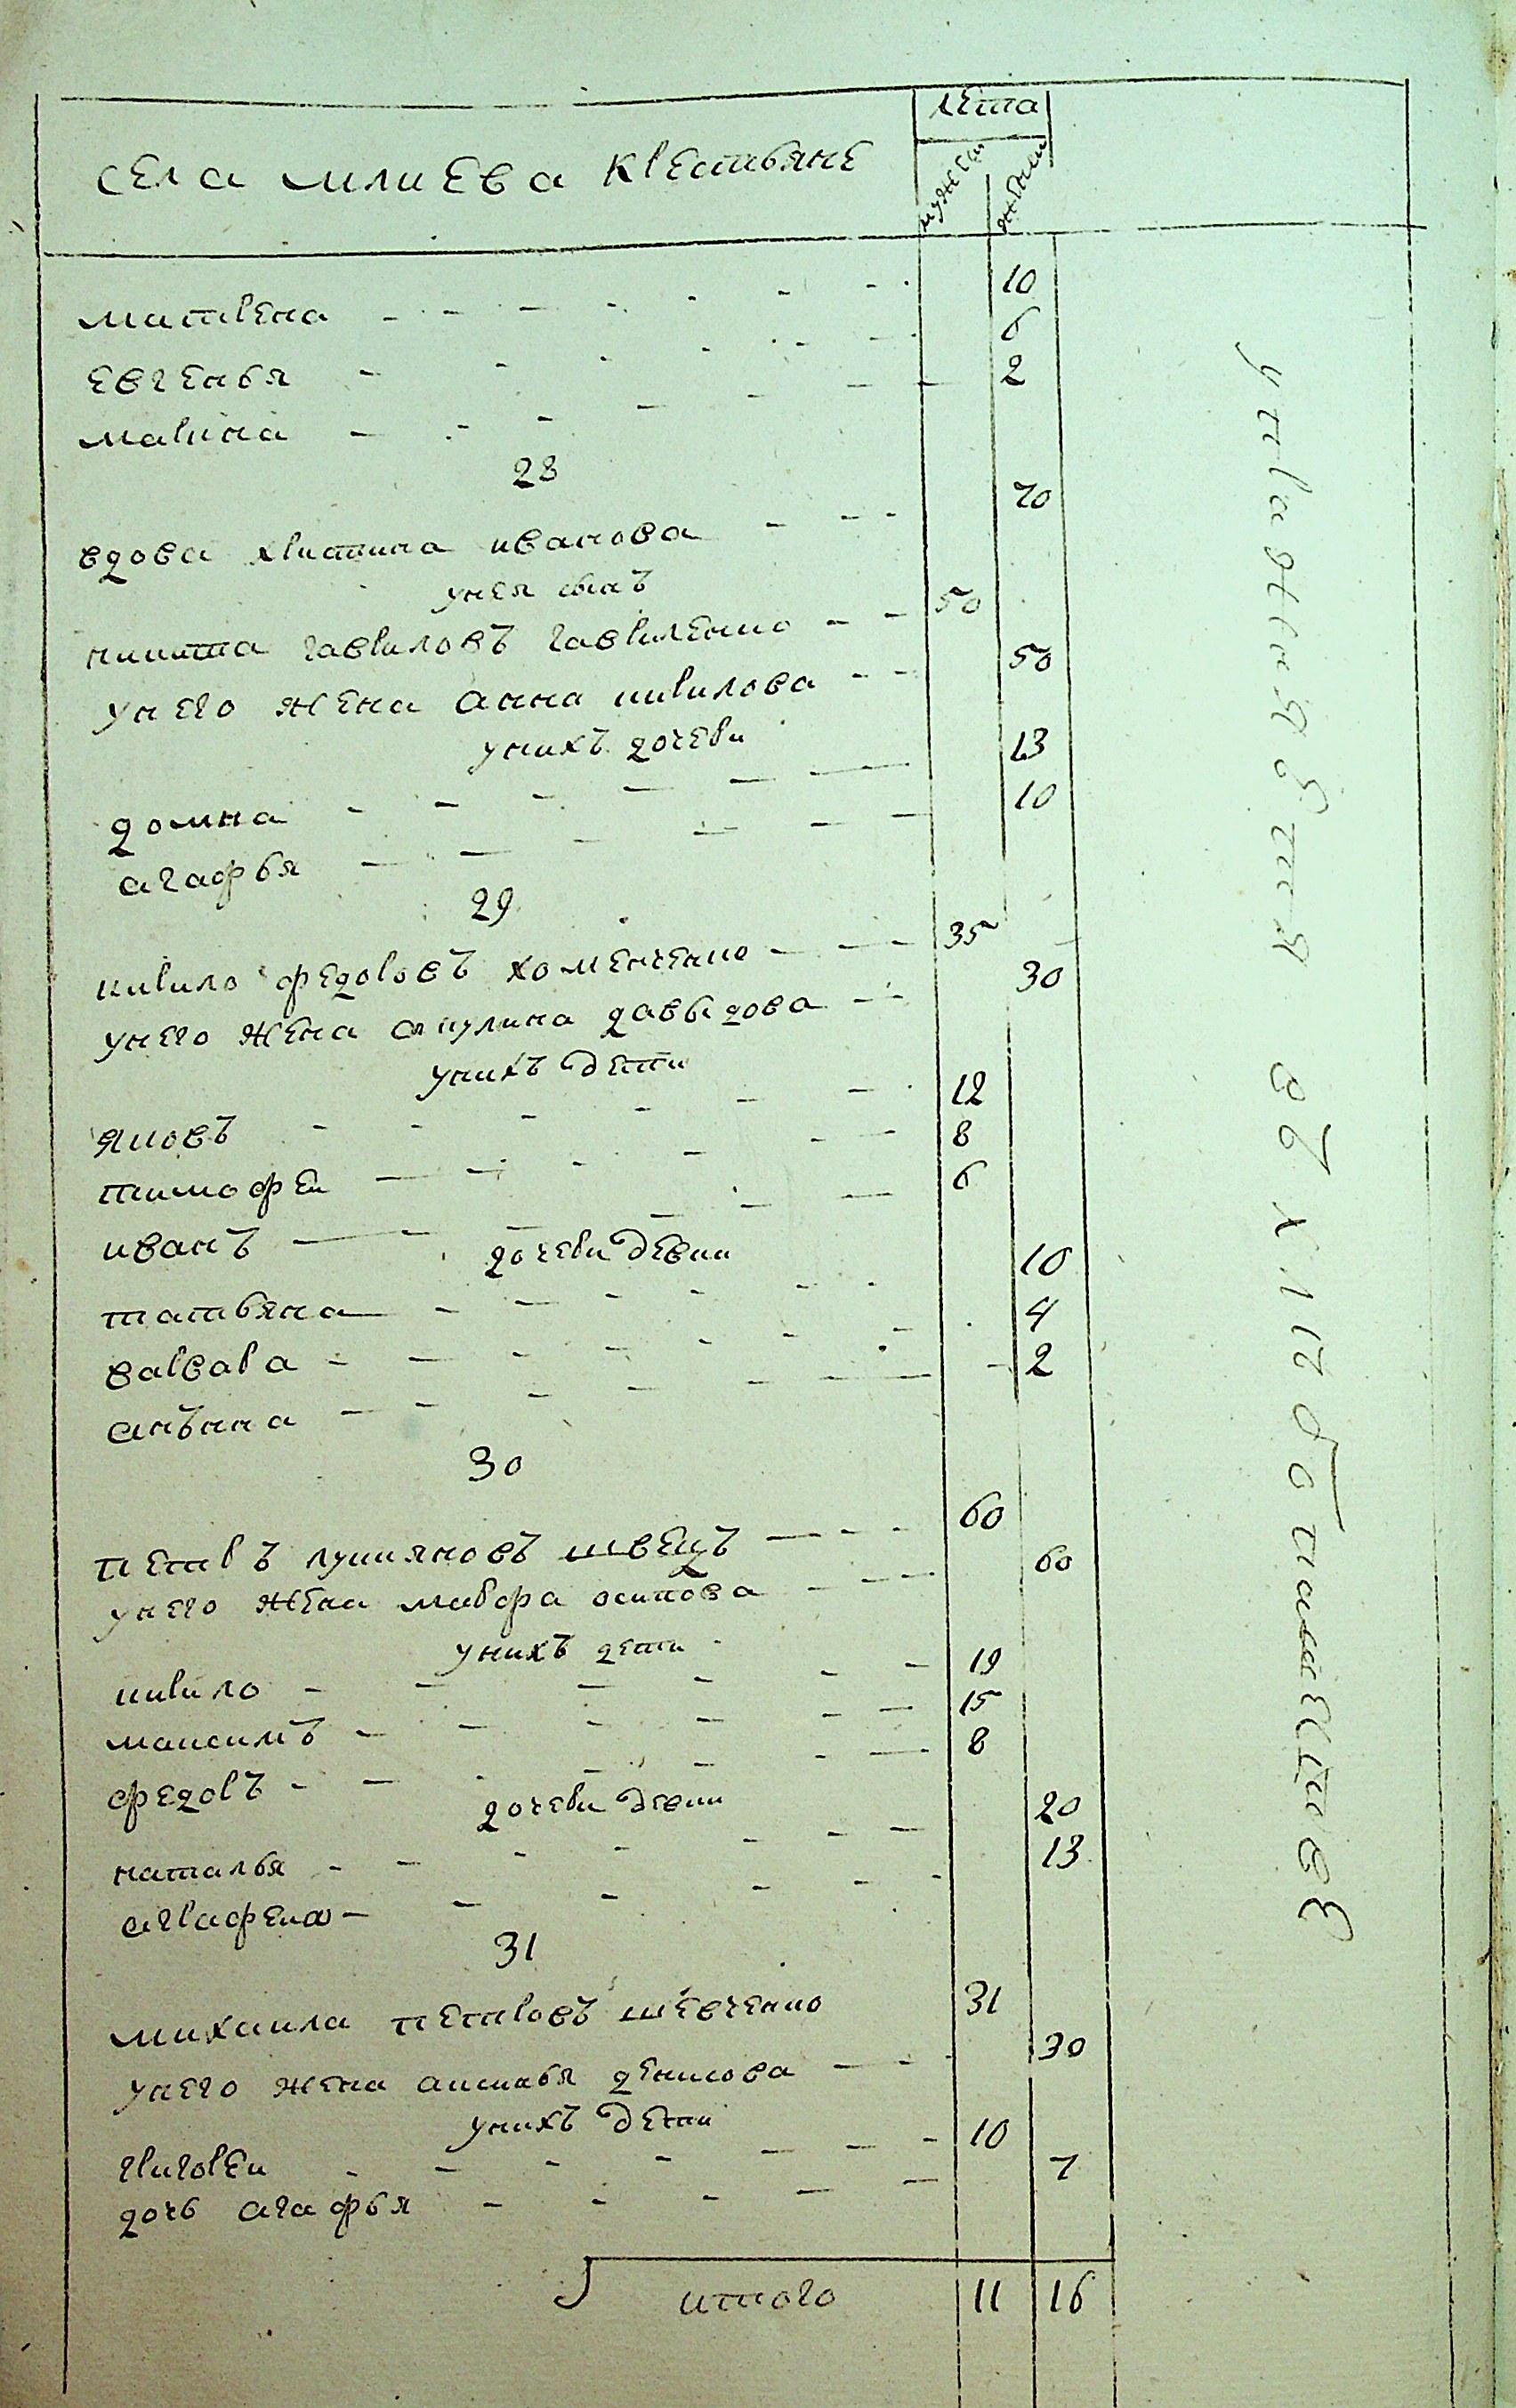 лета
села млиева крестьяне
мужеск
женск
матрена 10
евгенья 6
марина 2
28
вдова христина иванова 70
унея сынъ
никита гавриловъ гавриленко 50
унего жена анна кирилова 50
унихъ дочери
домна 13
агафья 10
29
кирило федоровъ хоменченко 35
унего жена акулина давыдова 30
унихъ дети
яковъ 12
тимофеи 8
иванъ 6
дочери девки
татьяна 10
варвара 4
анънна 2
30
петръ лукияновъ швецъ 60
унего жена мавра осипова 60
унихъ дети
кирило 19
максимъ 15
федоръ 8
дочери девки
наталья 20
аграфена 13
31
михаила петровъ шевченко 31
унего жена аксинья денисова 30
унихъ дети
григореи 10
дочь агафья 7
итого 11 16